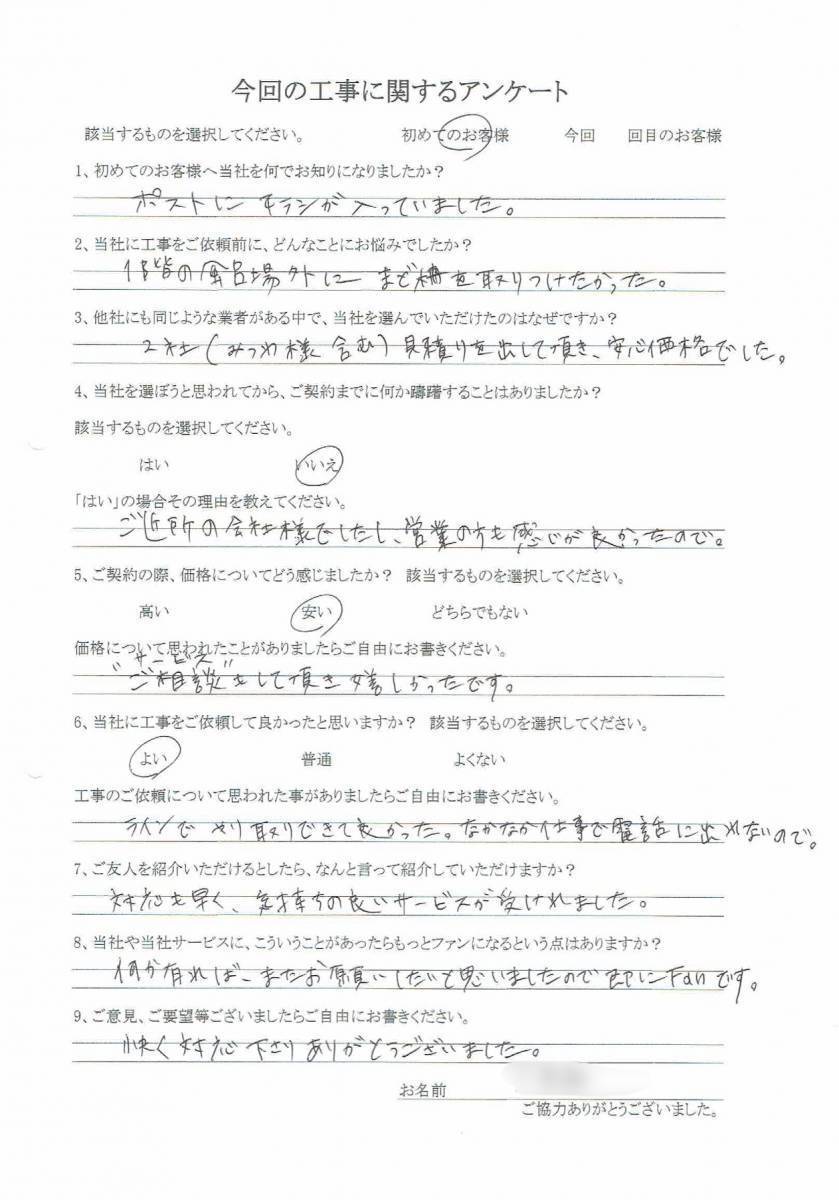 今回の工事に関するアンケート
該当するものを選択してください。 初めてのお客様 今回 回目のお客様
1、初めてのお客様へ当社を何でお知りになりましたか？
ポストにチラシが入っていました。
2、当社に工事をご依頼前に、どんなことにお悩みでしたか？
1階の風呂場外にまど柵を取りつけたかった。
3、他社にも同じような業者がある中で、当社を選んでいただけたのはなぜですか？
2社(みつわ様含む)見積りを出して頂き、安心価格でした。
4、当社を選ぼうと思われてから、ご契約までに何か躊躇することはありましたか？
該当するものを選択してください。
はい いいえ
「はい」の場合その理由を教えてください。
ご近所の会社様でしたし、営業の方も感じが良かったので。
5、ご契約の際、価格についてどう感じましたか？ 該当するものを選択してください。
高い 安い どちらでもない
価格について思われたことがありましたらご自由にお書きください。
サービス
"ご相談"もして頂き嬉しかったです。
6、当社に工事をご依頼して良かったと思いますか？ 該当するものを選択してください。
よい 普通 よくない
工事のご依頼について思われた事がありましたらご自由にお書きください。
ラインでやり取りできて良かった。なかなか仕事で電話に出れないので。
7、ご友人を紹介いただけるとしたら、なんと言って紹介していただけますか？
対応も早く、気持ちの良いサービスが受けれました。
8、当社や当社サービスに、こういうことがあったらもっとファンになるという点はありますか？
何か有れば、またお願いしたいと思いましたので既にFanです。
9、ご意見、ご要望等ございましたらご自由にお書きください。
快く対応下さりありがとうございました。
お名前
ご協力ありがとうございました。